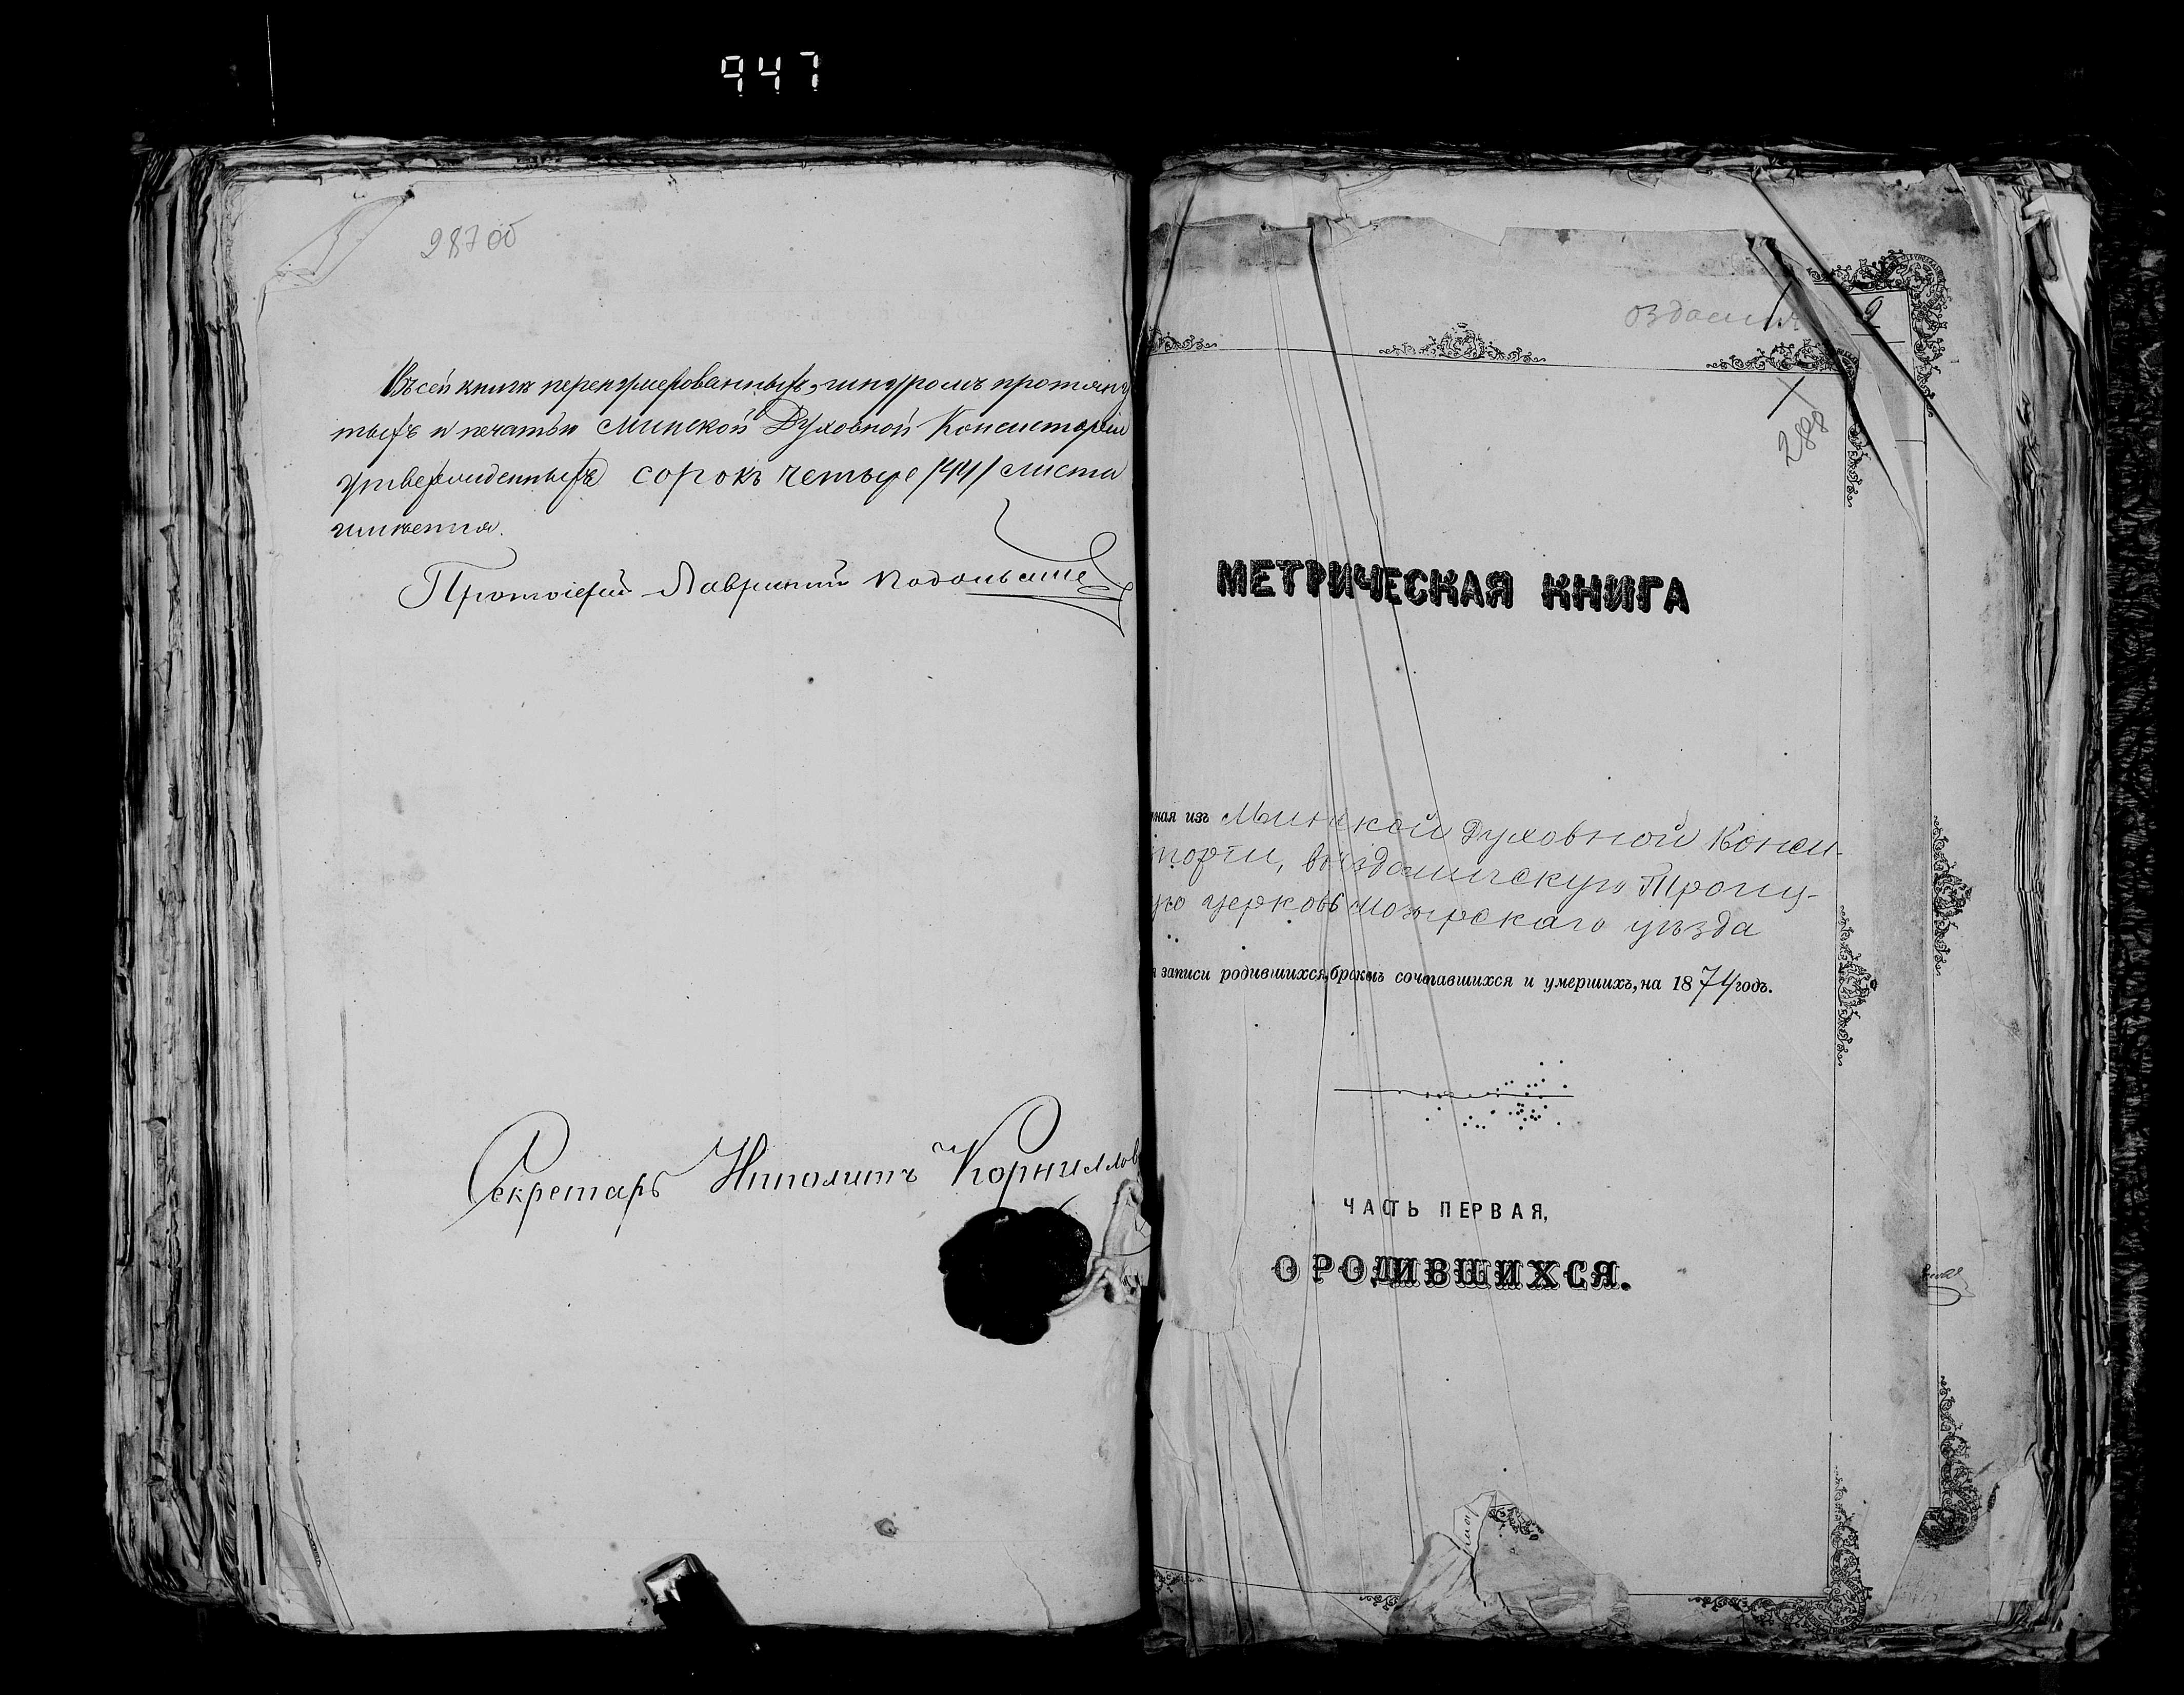 947
287 об
Въ сей книгѣ перенумерованныхъ, шнуромъ протяну
тыхъ и печатью Минской Духовной Консисторіи
утвержденныхъ сорокъ четыре /44/ листа
числится.
Протоіерей Лаврентій
Секретарь Ипполитъ Корнилов
2
288
МЕТРИЧЕСКАЯ КНИГА
нная изъ Минской Духовной Конси-
торіи, въ Оздамичскую Троиц-
ую церковь Мозырскаго уѣзда
я записи родившихся, бракомъ сочетавшихся и умершихъ, на 1874 годъ.
ЧАСТЬ ПЕРВАЯ,
О РОДИВШИХСЯ.